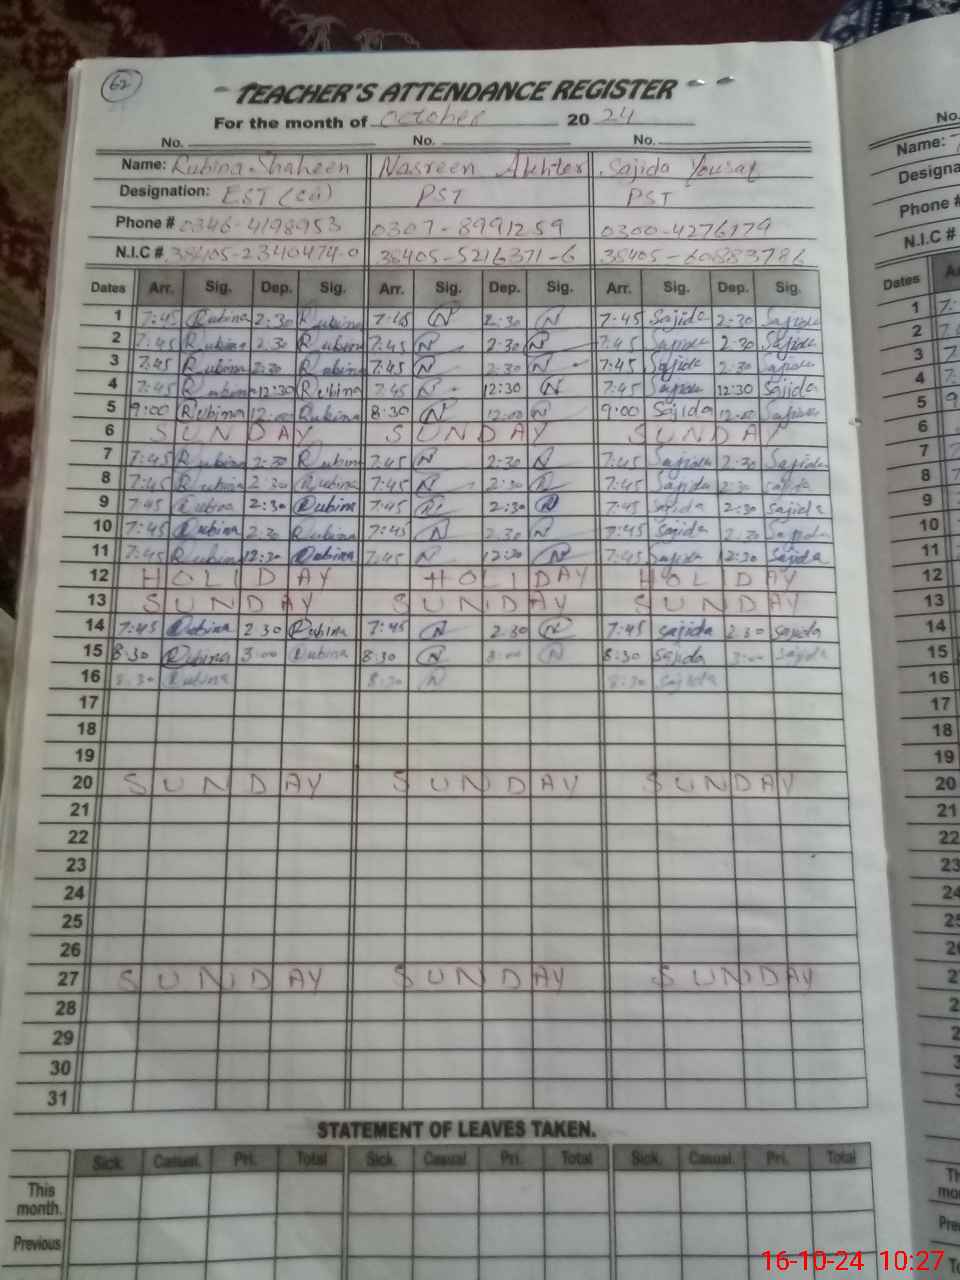 62
TEACHER'S ATTENDANCE REGISTER
For the month of October 2024
No. No. No.
Name: Rubina Shaheen Nasreen Akhter Sajida Yousaf
Designation: EST (CG) PST PST
Phone # 0346-4198953 0307-8991259 0300-4276179
N.I.C # 38405-2340474-0 38405-5216371-6 38405-
Dates Arr. Sig. Dep. Sig. Arr. Sig. Dep. Sig. Arr. Sig. Dep. Sig.
1 7:45 Rubina 2:30 Rubina 7:45 N 2:30 N 7:45 Sajida 2:30 Sajida
2 7:45 Rubina 2:30 Rubina 7:45 N 2:30 N 7:45 Sajida 2:30 Sajida
3 7:45 Rubina 2:30 Rubina 7:45 N 2:30 N 7:45 Sajida 2:30 Sajida
4 7:45 Rubina 12:30 Rubina 7:45 N 12:30 N 7:45 Sajida 12:30 Sajida
5 9:00 Rubina 12:00 Rubina 8:30 N 12:00 N 9:00 Sajida 12:00 Sajida
6 SUNDAY SUNDAY SUNDAY
7 7:45 Rubina 2:30 Rubina 7:45 N 2:30 N 7:45 Sajida 2:30 Sajida
8 7:45 Rubina 2:30 Rubina 7:45 N 2:30 N 7:45 Sajida 2:30 Sajida
9 7:45 Rubina 2:30 Rubina 7:45 N 2:30 N 7:45 Sajida 2:30 Sajida
10 7:45 Rubina 2:30 Rubina 7:45 N 2:30 N 7:45 Sajida 2:30 Sajida
11 7:45 Rubina 12:30 Rubina 7:45 N 12:30 N 7:45 Sajida 12:30 Sajida
12 HOLIDAY HOLIDAY HOLIDAY
13 SUNDAY SUNDAY SUNDAY
14 7:45 Rubina 2:30 Rubina 7:45 N 2:30 N 7:45 Sajida 2:30 Sajida
15 8:30 Rubina 3:00 Rubina 8:30 N 3:00 N 8:30 Sajida 3:00 Sajida
16 8:30 Rubina 8:30 N 8:30 Sajida
17
18
19
20 SUNDAY SUNDAY SUNDAY
21
22
23
24
25
26
27 SUNDAY SUNDAY SUNDAY
28
29
30
31
STATEMENT OF LEAVES TAKEN.
Sick. Casual. Pri. Total Sick. Casual. Pri. Total Sick. Casual. Pri. Total
This month.
Previous
16-10-24 10:27